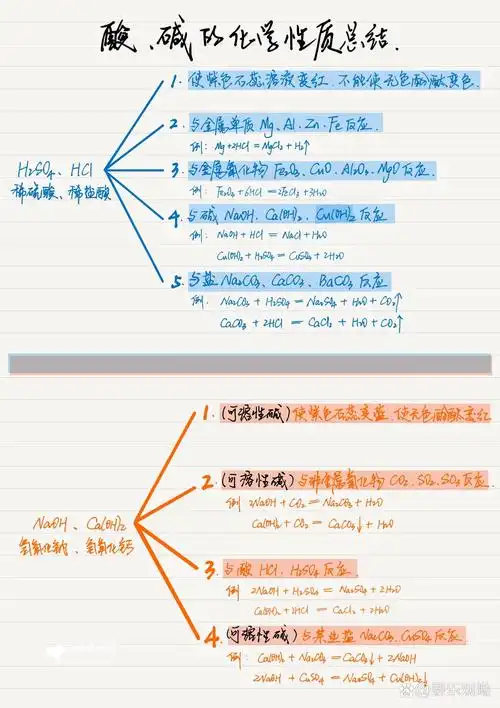 酸、碱的化学性质总结.
1. 使紫色石蕊溶液变红.不能使无色酚酞变色.
2. 与金属单质 Mg、Al、Zn、Fe 反应.
例: Mg+2HCl = MgCl₂ + H₂↑
H₂SO₄、HCl
稀硫酸、稀盐酸
3. 与金属氧化物 Fe₂O₃、CuO、Al₂O₃、MgO 反应.
例: Fe₂O₃ + 6HCl = 2FeCl₃ + 3H₂O
4. 与碱 NaOH、Ca(OH)₂、Cu(OH)₂ 反应
例: NaOH + HCl = NaCl + H₂O
Cu(OH)₂ + H₂SO₄ = CuSO₄ + 2H₂O
5. 与盐 Na₂CO₃、CaCO₃、BaCO₃ 反应
例: Na₂CO₃ + H₂SO₄ = Na₂SO₄ + H₂O + CO₂↑
CaCO₃ + 2HCl = CaCl₂ + H₂O + CO₂↑
1. (可溶性碱) 使紫色石蕊变蓝 使无色酚酞变红
2. (可溶性碱) 与非金属氧化物 CO₂、SO₂、SO₃ 反应.
例 2NaOH + CO₂ = Na₂CO₃ + H₂O
Ca(OH)₂ + CO₂ = CaCO₃↓ + H₂O
NaOH、Ca(OH)₂
氢氧化钠、氢氧化钙
3. 与酸 HCl、H₂SO₄ 反应.
例 2NaOH + H₂SO₄ = Na₂SO₄ + 2H₂O
Ca(OH)₂ + 2HCl = CaCl₂ + 2H₂O
4. (可溶性碱) 与某些盐 Na₂CO₃、CuSO₄ 反应.
例: Ca(OH)₂ + Na₂CO₃ = CaCO₃↓ + 2NaOH
2NaOH + CuSO₄ = Na₂SO₄ + Cu(OH)₂↓